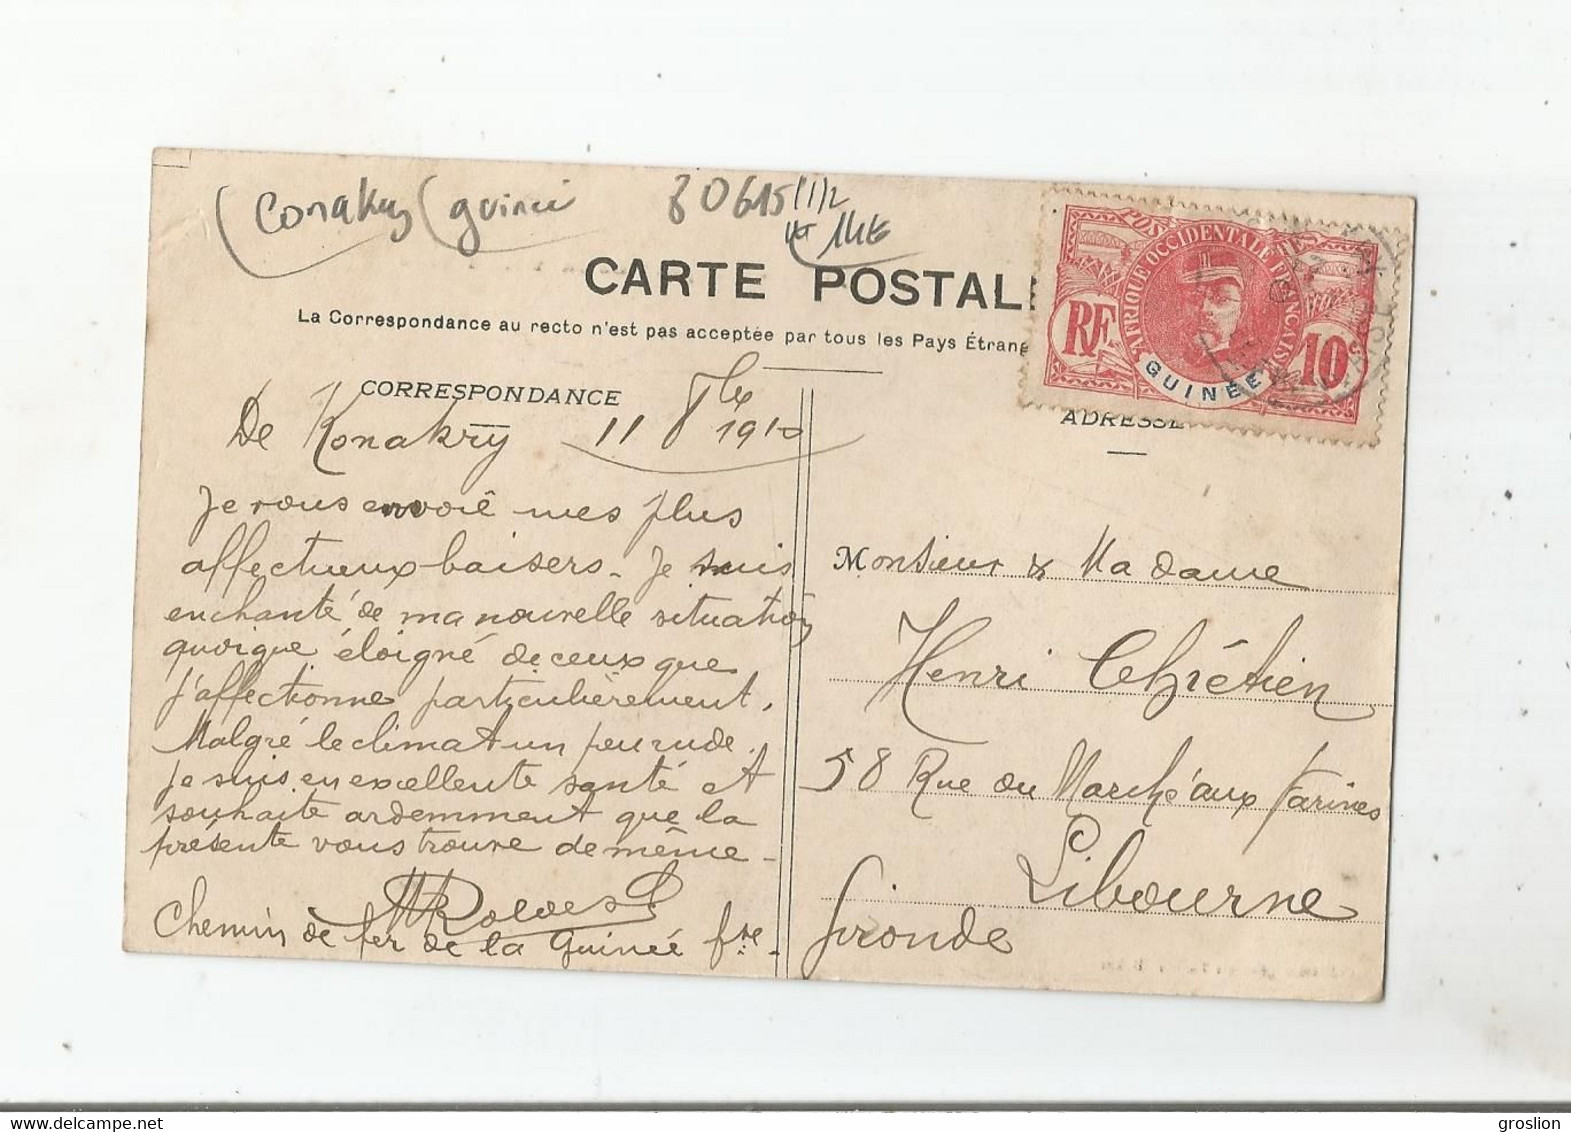 Conakry Guinée
80615
CARTE POSTAL
La Correspondance au recto n'est pas acceptée par tous les Pays Étrang
POSTES
AFRIQUE OCCIDENTALE FRANÇAISE
RF
10c
GUINÉE
CORRESPONDANCE
ADRESSE
De Konakry 11 8bre 1910
Je vous envoie mes plus
affectueux baisers. Je suis
enchanté de ma nouvelle situation
quoique éloigné de ceux que
j'affectionne particulièrement.
Malgré le climat un peu rude.
je suis en excellente santé et
souhaite ardemment que la
présente vous trouve de même.
Chemin de fer de la Guinée fse.
Monsieur & Madame
Henri Chrétien
58 Rue du Marché aux farines
Libourne
Gironde
groslion